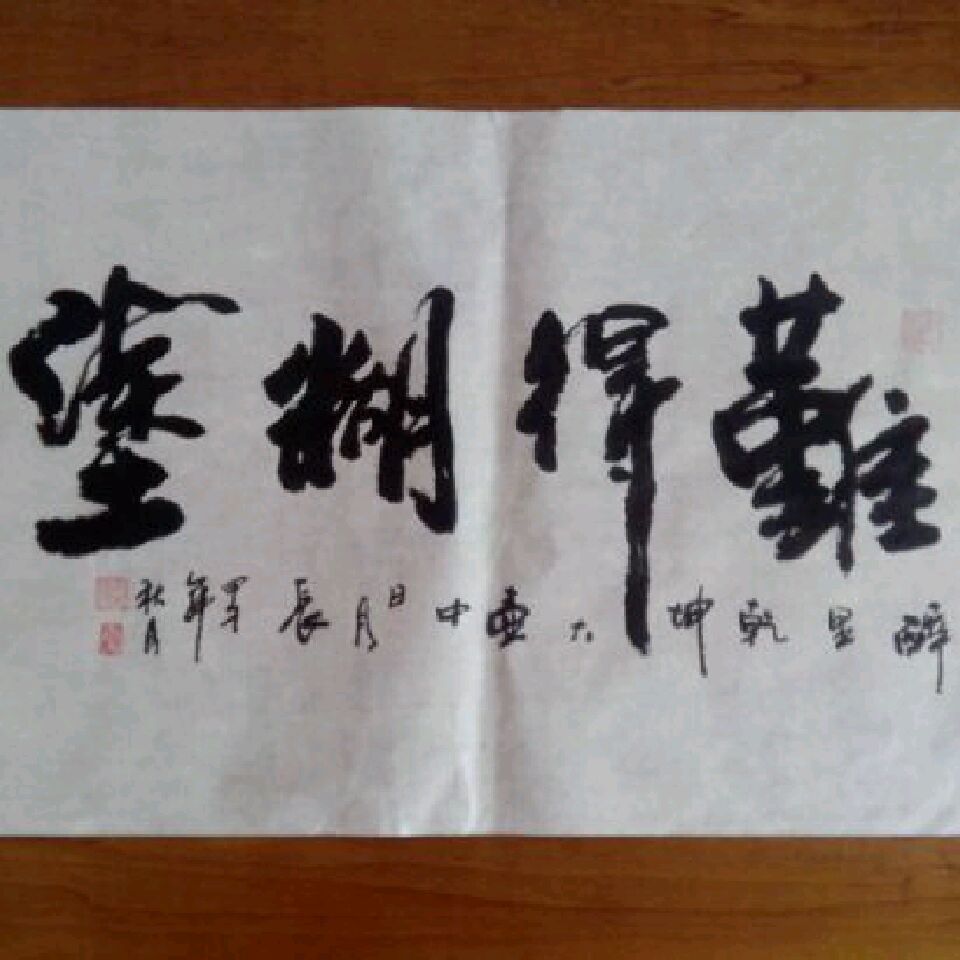 難得糊塗
醉里乾坤大壺中日月長
年
秋月